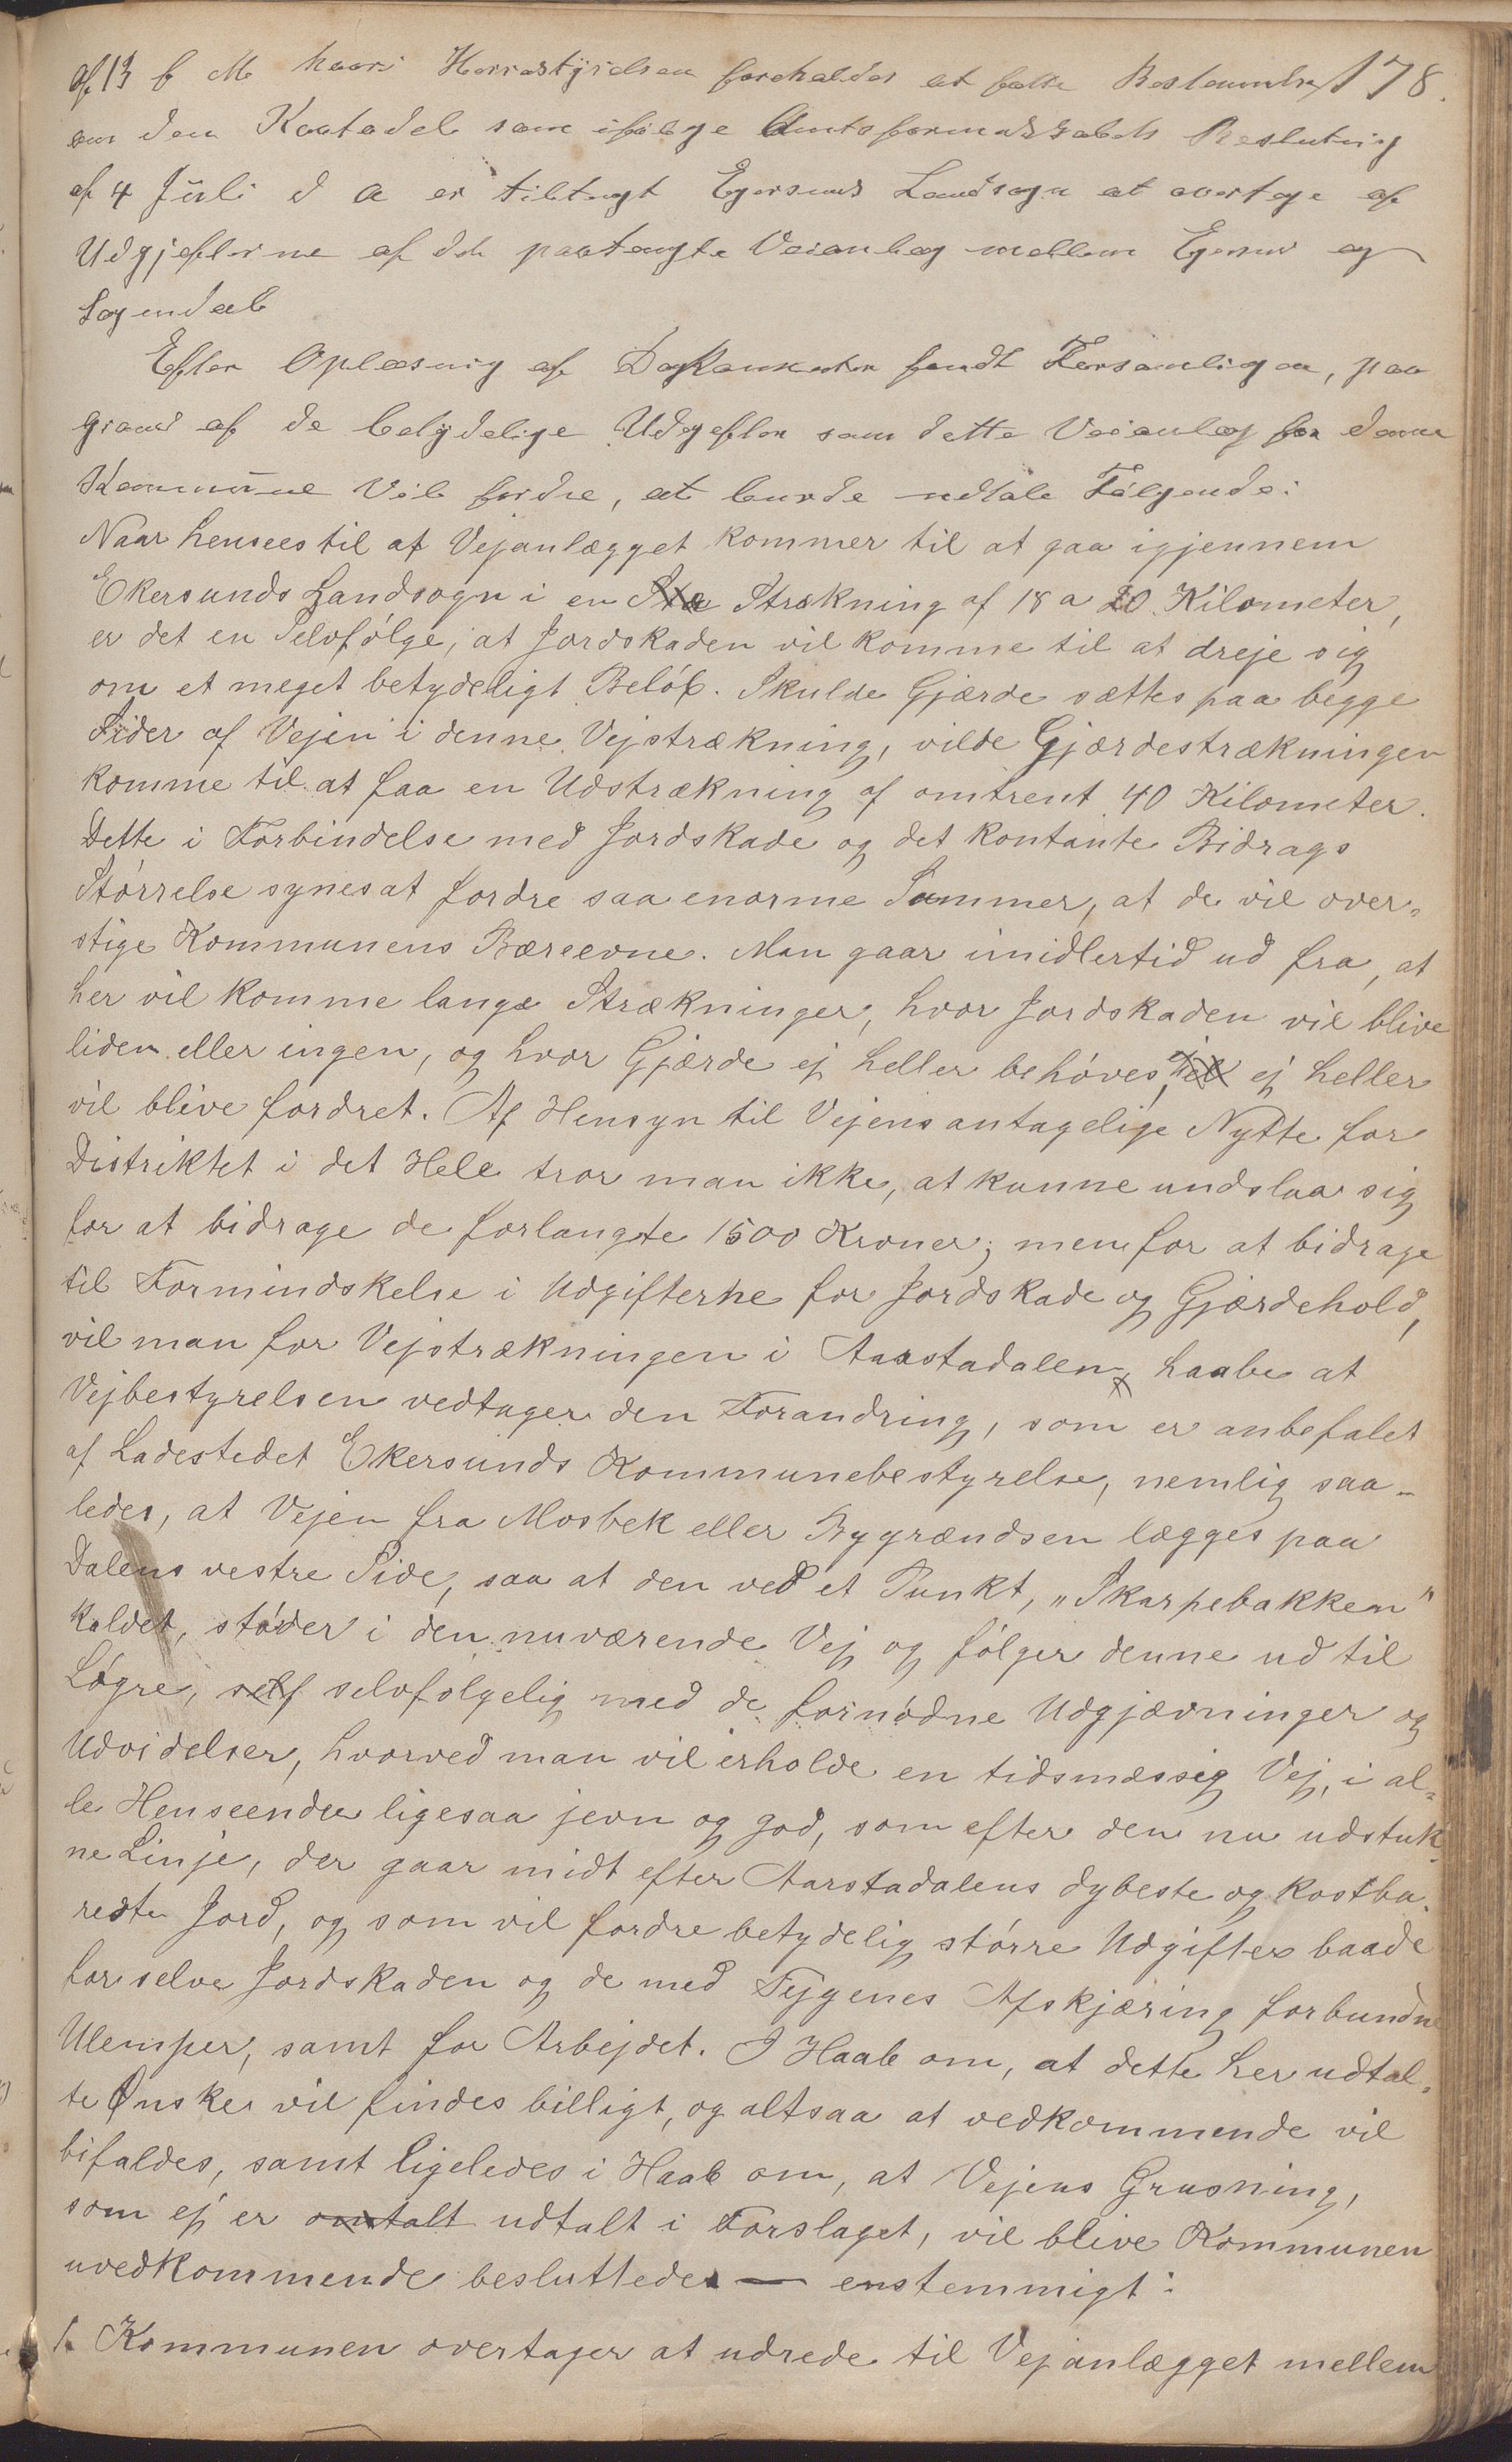 178.
af 13 f M hvori Herredstyrelsen foreholdes at fatte Bestemmelse
om den Kvotadel som ifølge Amtsformandskabets Beslutning
af 4 Juli d A er tiltægt Egersund Landsogn at overtage af
Udgifterne af det paatængte Veianlæg mellem Egersund og
Sogndal
Efter Oplæsning af Dokumenter fandt Forsamlingen, paa
grund af de betydelige Udgifter som dette Veianlæg for denne
Kommune vil fordre, at burde udtale Følgende:
Naar hensees til at Vejanlægget kommer til at gaa igjennem
Ekersunds Landsogn i en Strækning af 18 a 20 Kilometer,
er det en Selvfølge, at Jordskaden vil komme til at dreje sig
om et meget betydeligt Beløb. Skulde Gjærde sættes paa begge
Sider af Vejen i denne Vejstrækning, vilde Gjærdestrækningen
komme til at faa en Udstrækning af omtrent 40 Kilometer.
Dette i Forbindelse med Jordskade og det kontante Bidrags
Størrelse synes at fordre saa enorme Summer, at de vil over-
stige Kommunens Bæreevne. Man gaar imidlertid ud fra, at
her vil komme lange Strækninger, hvor Jordskaden vil blive
liden eller ingen, og hvor Gjærde ej heller behøves, ej heller
vil blive fordret. Af Hensyn til Vejens antagelige Nytte for
Distriktet i det Hele tror man ikke, at kunne undslaa sig
for at bidrage de forlangte 1500 Kroner; men for at bidrage
til Formindskelse i Udgifterne for Jordskade og Gjærdehold,
vil man for Vejstrækningen i Aarstadalen haabe at
Vejbestyrelsen vedtager den Forandring, som er anbefalet
af Ladestedet Ekersunds Kommunebestyrelse, nemlig saa-
ledes, at Vejen fra Mosbek eller Bygrændsen lægges paa
Dalens vestre Side, saa at den ved et Punkt, "Skarpebakken"
kaldet, støder i den nuværende Vej og følger denne ud til
Løgre, self selvfølgelig med de fornødne Udgjævninger og
Udvidelser, hvorved man vil erholde en tidsmæssig Vej, i al-
le Henseender ligesaa jevn og god, som efter den nu udstuk-
ne Linje, der gaar midt efter Aarstadalens dybeste og kostba-
reste Jord, og som vil fordre betydelig større Udgifter baade
for selve Jordskaden og de med Tejgenes Afskjæring forbundne
Ulemper, samt for Arbejdet. I Haab om, at dette her udtal-
te Ønske vil findes billigt, og altsaa at vedkommende vil
bifaldes, samt ligeledes i Haab om, at Vejens Grusning,
som ej er omtalt udtalt i Forslaget, vil blive Kommunen
uvedkommende besluttedes — enstemmigt:
1. Kommunen overtager at udrede til Vejanlægget mellem